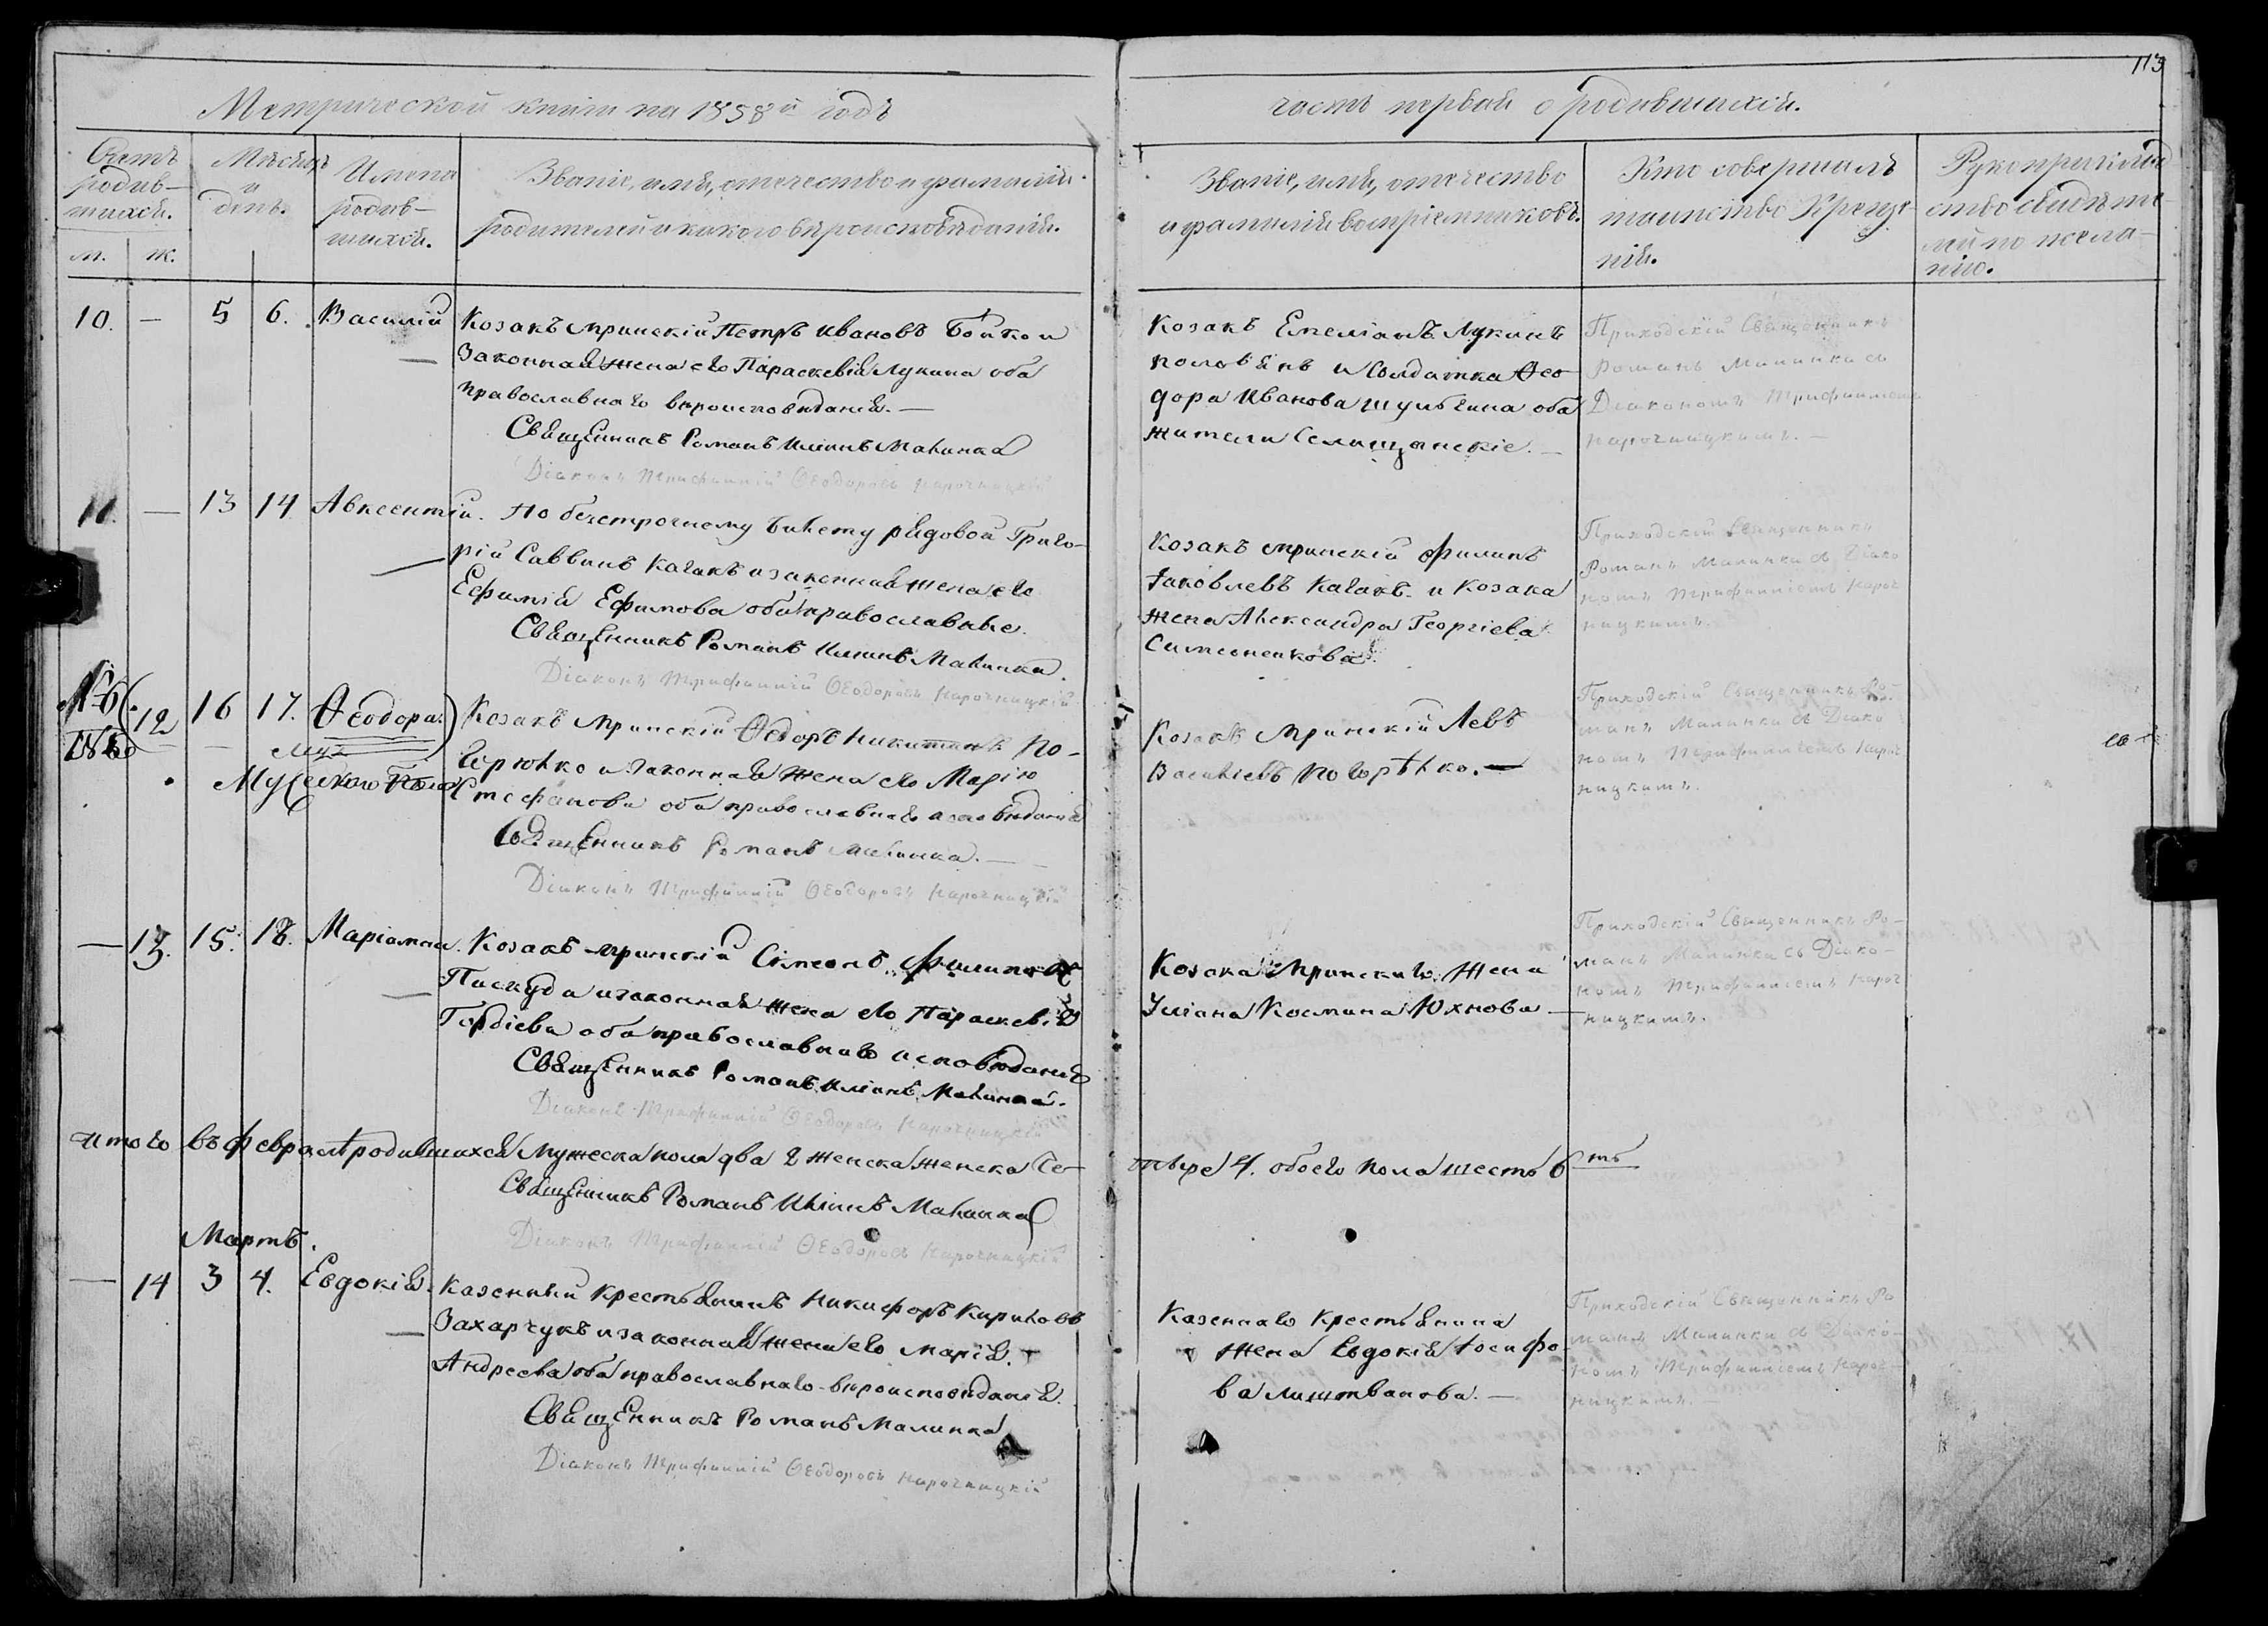 113
Метрической книги на 1858й годъ
часть первая о родившихся.
Счетъ
родив-
шихся.
м.
ж.
Мѣсяцъ
и
день.
Имена
родив-
шихся.
Званіе, имя, отечество и фамилія
родителей и какого вѣроисповѣданія.
Званіе, имя, отечество
и фамилія воспріемниковъ.
Кто совершалъ
таинство Креще-
нія.
Рукоприклад
ство свидѣте
лей по жела-
нію.
10. — 5 6. Василій
Козакъ Мринскій Петръ Ивановъ Бойко и
Законная жена его Параскевія Лукина оба
православнаго вѣроисповѣданія. —
Священникъ Романъ Иліинъ Малинка
Діаконъ Трифиллій Ѳеодоровъ Нарочницкій
Козакъ Емеліанъ Лукинъ
и Солдатка Ѳео-
дора Иванова оба
жители Селищянскіе. —
Приходскій Священникъ
Романъ Малинка съ
Діакономъ Трифилліемъ
Нарочницкимъ. —
11. — 13 14 Авксентій.
По безсрочному билету рядовой Григо-
рій Саввинъ и законная жена его
Ефимія Ефимова оба православные.
Священникъ Романъ Иліинъ Малинка.
Діаконъ Трифиллій Ѳеодоровъ Нарочницкій
Козакъ Мринскій Филипъ
Іаковлевъ и Козака
жена Александра Георгіева
Симоненкова.
Приходскій Священникъ
Романъ Малинка съ Діако
номъ Трифилліемъ Нароч
ницкимъ.
12 16 17. Ѳеодора.
Муж
Мужескаго Пола
Козакъ Мринскій Ѳедоръ Никитинъ По-
и законная жена его Марія
Стефанова оба православнаго исповѣданія
Священникъ Романъ Малинка. —
Діаконъ Трифиллій Ѳеодоровъ Нарочницкій
Козакъ Мринскій Левъ
Васильевъ Погорѣлко. —
Приходскій Священникъ Ро-
манъ Малинка съ Діако
номъ Трифилліемъ Нароч
ницкимъ.
— 13. 15. 18. Маріамна.
Козакъ Мринскій Симеонъ
Паскуда и законная жена его Параскевія
Гордіева оба православнаго исповѣданія
Священникъ Романъ Иліинъ Малинка.
Діаконъ Трифиллій Ѳеодоровъ Нарочницкій
Козака Мринскаго Жена
Уліана Космина Юхнова —
Приходскій Священникъ Ро-
манъ Малинка съ Діако-
номъ Трифилліемъ Нароч
ницкимъ.
Итого въ февралѣ родившихся Мужеска пола два 2 женска женска Че-
тыре 4. обоего пола шесть 6ть
Священникъ Романъ Иліинъ Малинка
Діаконъ Трифиллій Ѳеодоровъ Нарочницкій
Мартъ.
— 14 3 4. Евдокія.
Казенный Крестьянинъ Никифоръ Кириловъ
Захарчукъ и законная жена его Марія
Андреева оба православнаго вѣроисповѣданія.
Священникъ Романъ Малинка
Діаконъ Трифиллій Ѳеодоровъ Нарочницкій
Казеннаго Крестьянина
Жена Евдокія Іосифо-
ва Лиштванова. —
Приходскій Священникъ Ро
манъ Малинка съ Діако-
номъ Трифилліемъ Нароч-
ницкимъ. —